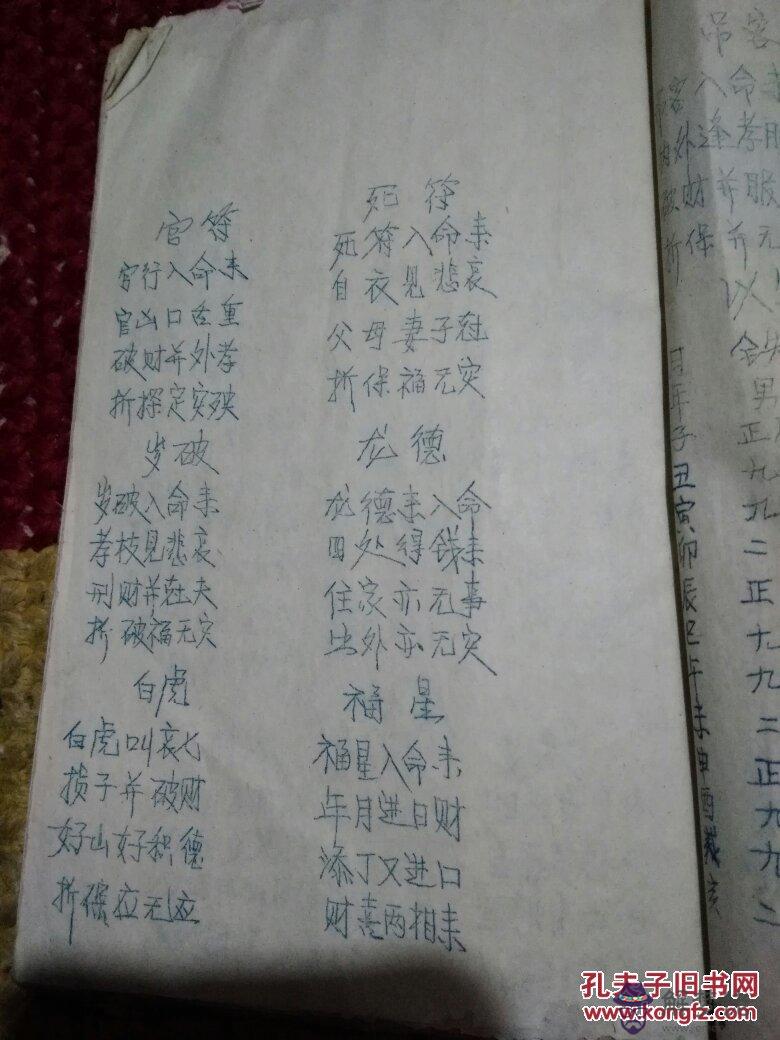 官符
官行入命来
官山口舌重
破财并外孝
折探定灾殃
岁破
岁破入命来
孝枝见悲哀
刑财并在夫
折破福无灾
白虎
白虎叫哀七
损子并破财
好山好积德
折保应无应
死符
死符入命来
自衣见悲哀
父母妻子在
折保福无灾
龙德
龙德来入命
四处得钱来
住家亦无事
出外亦无灾
福星
福星入命来
年月进日财
添丁又进口
财喜两相来
吊客
客入命来
外逢孝服
破财并服
折保并无
以
铁
男
日年子丑寅卯辰巳午未申酉戌亥
正九九二正九九二正九九二
孔夫子旧书网
www.kongfz.com